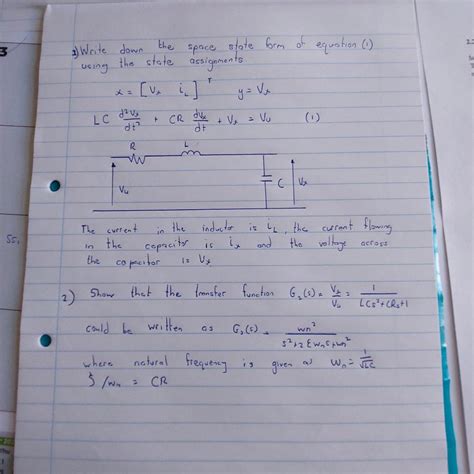 1) Write down the space state form of equation (1)
using the state assignments
x = [Vx iL]ᵀ y = Vx
LC d²Vx/dt² + CR dVx/dt + Vx = Vu (1)
R L
Vu C Vx
The current in the inductor is iL, the current flowing
in the capacitor is ix and the voltage across
the capacitor is Vx
2) Show that the transfer function G₂(s) = Vx/Vu = 1/LCs²+CRs+1
could be written as G₂(s) = wn²/s²+2ξwns+wn²
where natural frequency is given as wn = 1/√LC
ξ/wn = CR
3
55,